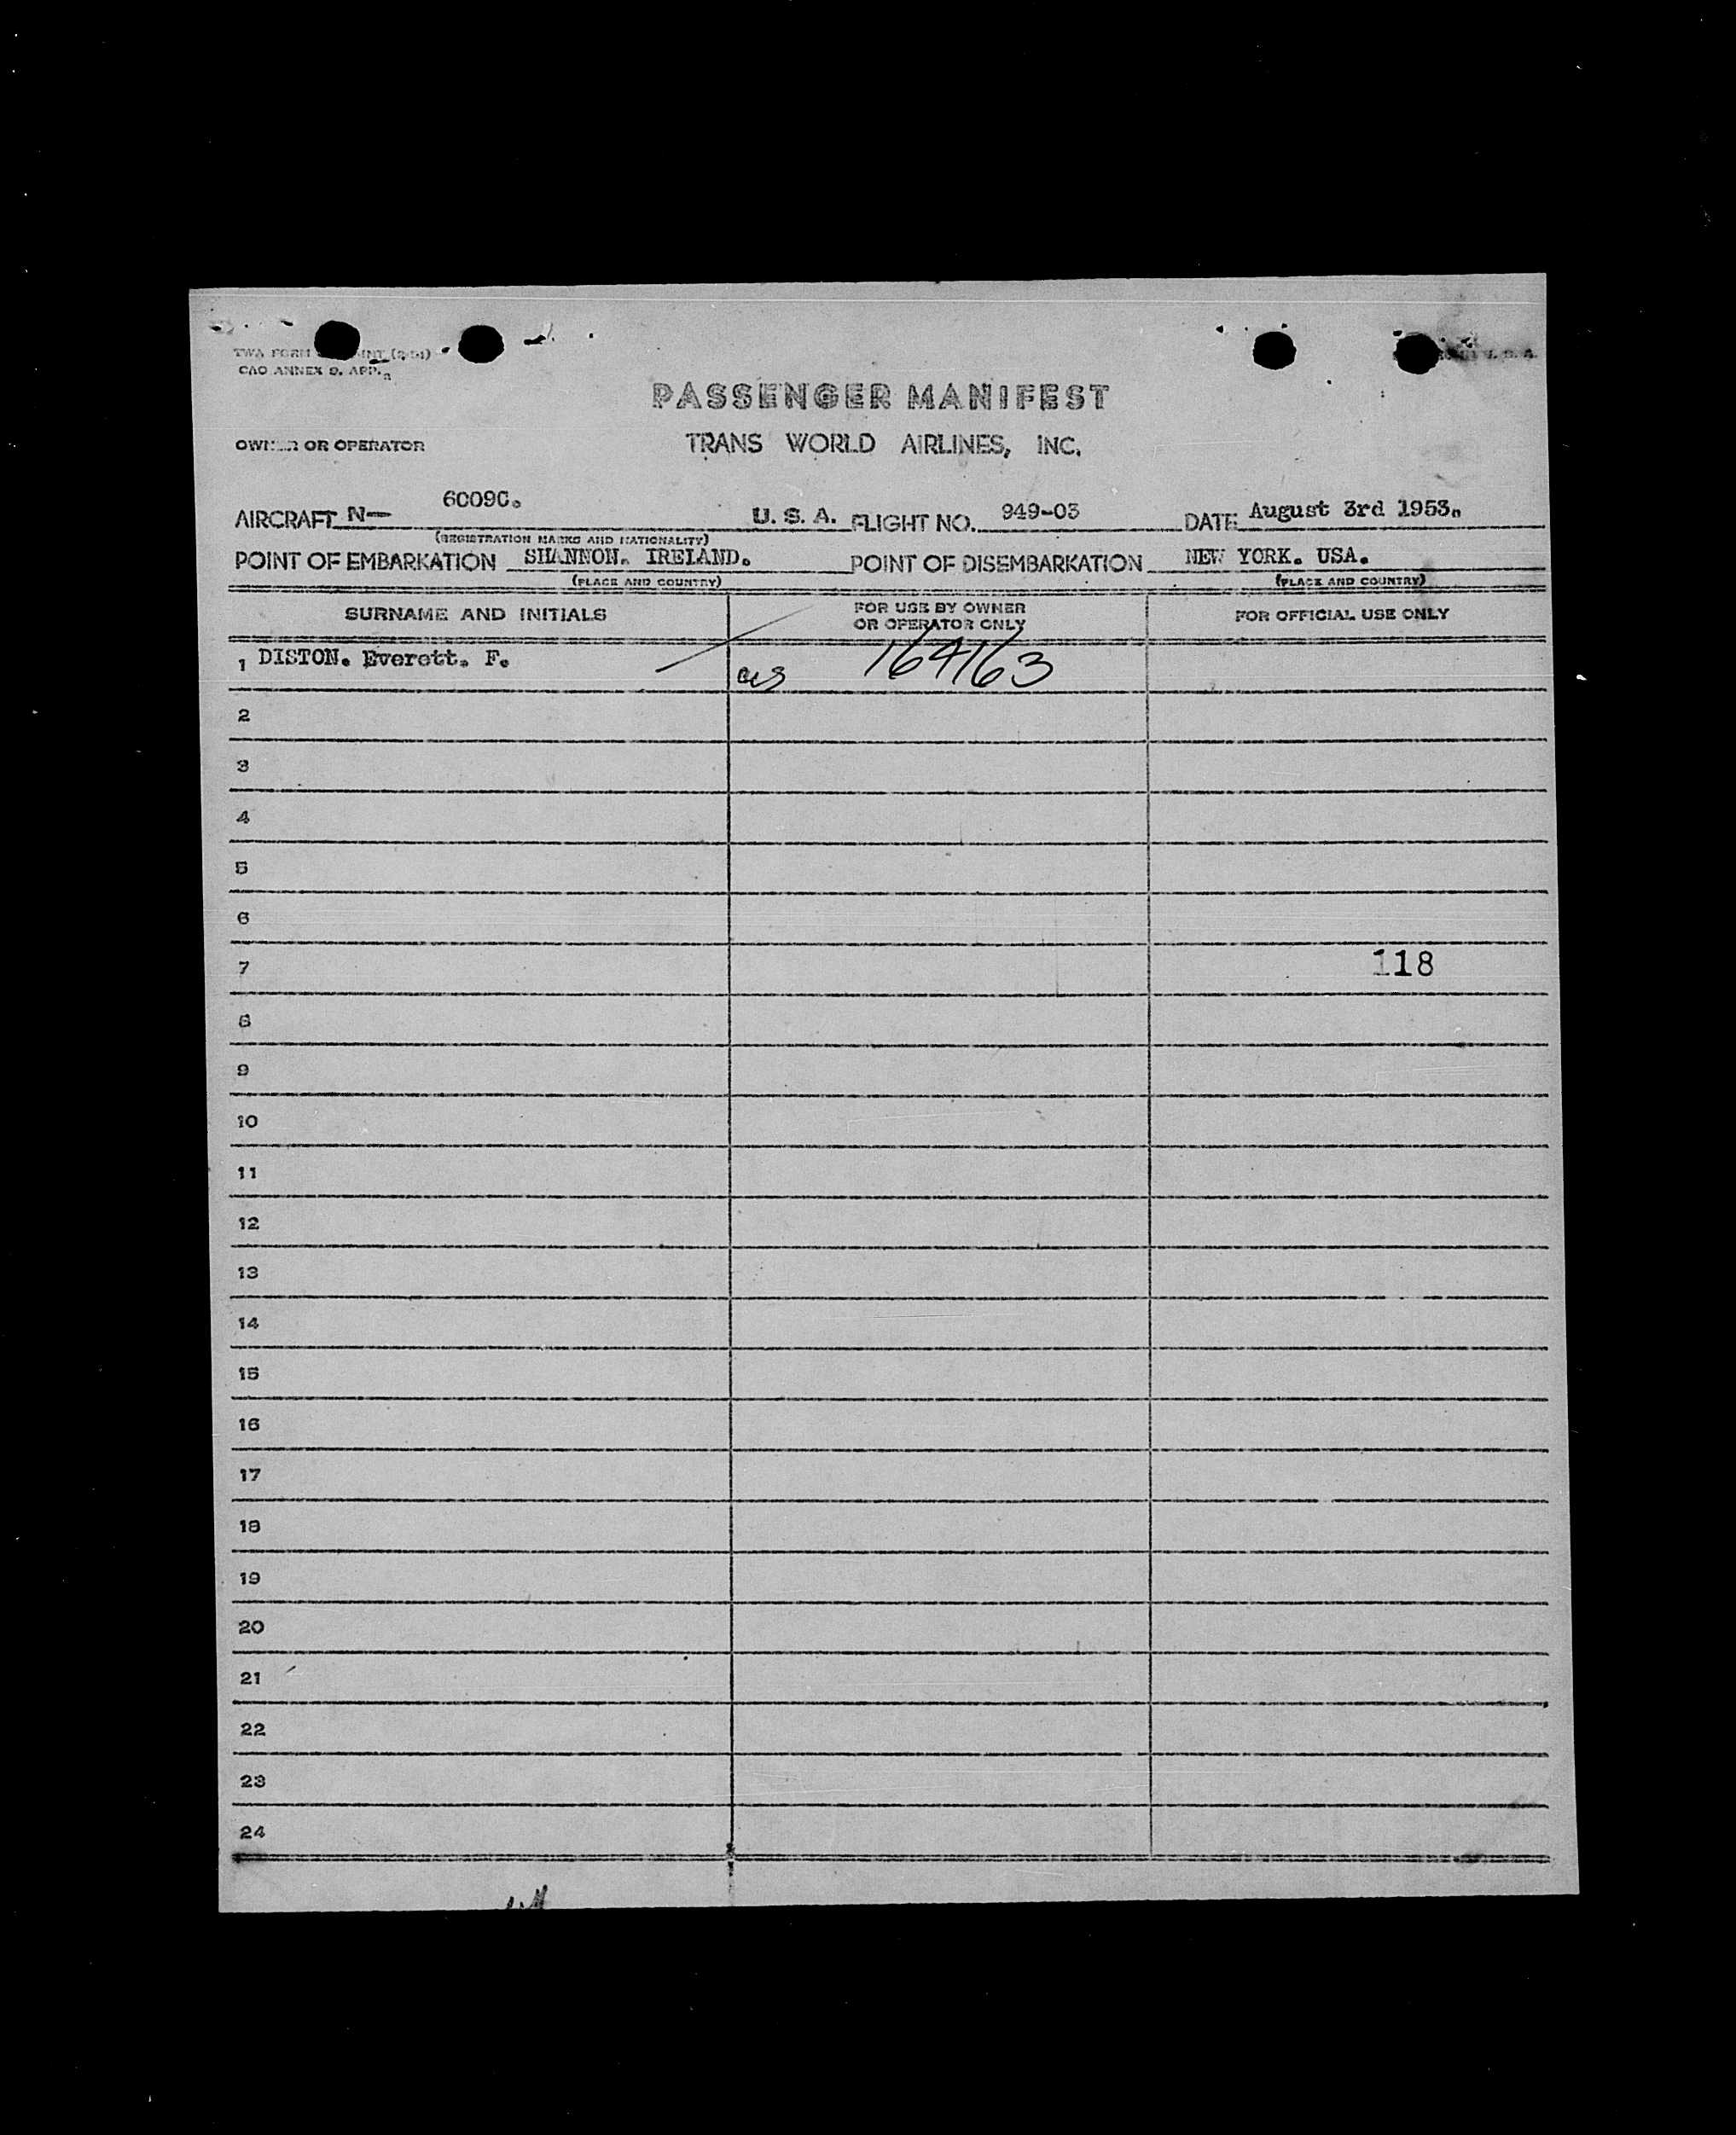 TWA FORM
CAO ANNEX 9. APP.
PASSENGER MANIFEST
OWNER OR OPERATOR TRANS WORLD AIRLINES, INC.
AIRCRAFT N— 6009C. U. S. A. FLIGHT NO. 949-03 DATE August 3rd 1953.
(REGISTRATION MARKS AND NATIONALITY)
POINT OF EMBARKATION SHANNON. IRELAND. POINT OF DISEMBARKATION NEW YORK. USA.
(PLACE AND COUNTRY) (PLACE AND COUNTRY)
SURNAME AND INITIALS FOR USE BY OWNER OR OPERATOR ONLY FOR OFFICIAL USE ONLY
1 DISTON. Everett. F. 164163
2
3
4
5
6
7 118
8
9
10
11
12
13
14
15
16
17
18
19
20
21
22
23
24